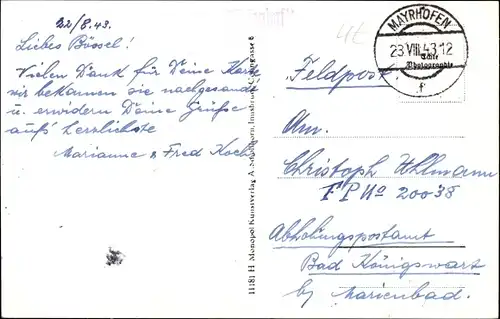 22/8.43.
Liebes Büssel!
Vielen Dank für Deine Karte
wir bekamen sie nachgesandt
u. erwidern Deine Grüße
aufs herzlichste
Marianne & Fred Koch
11181 H Monopol Kunstverlag A. Innsbruck
MAYRHOFEN
23.VIII.43.12
f
Echte
Photographie
Feldpost.
Am.
Christoph Uhlmann
F P No 20038
Abholungspostamt
Bad Königswart
by Marienbad.